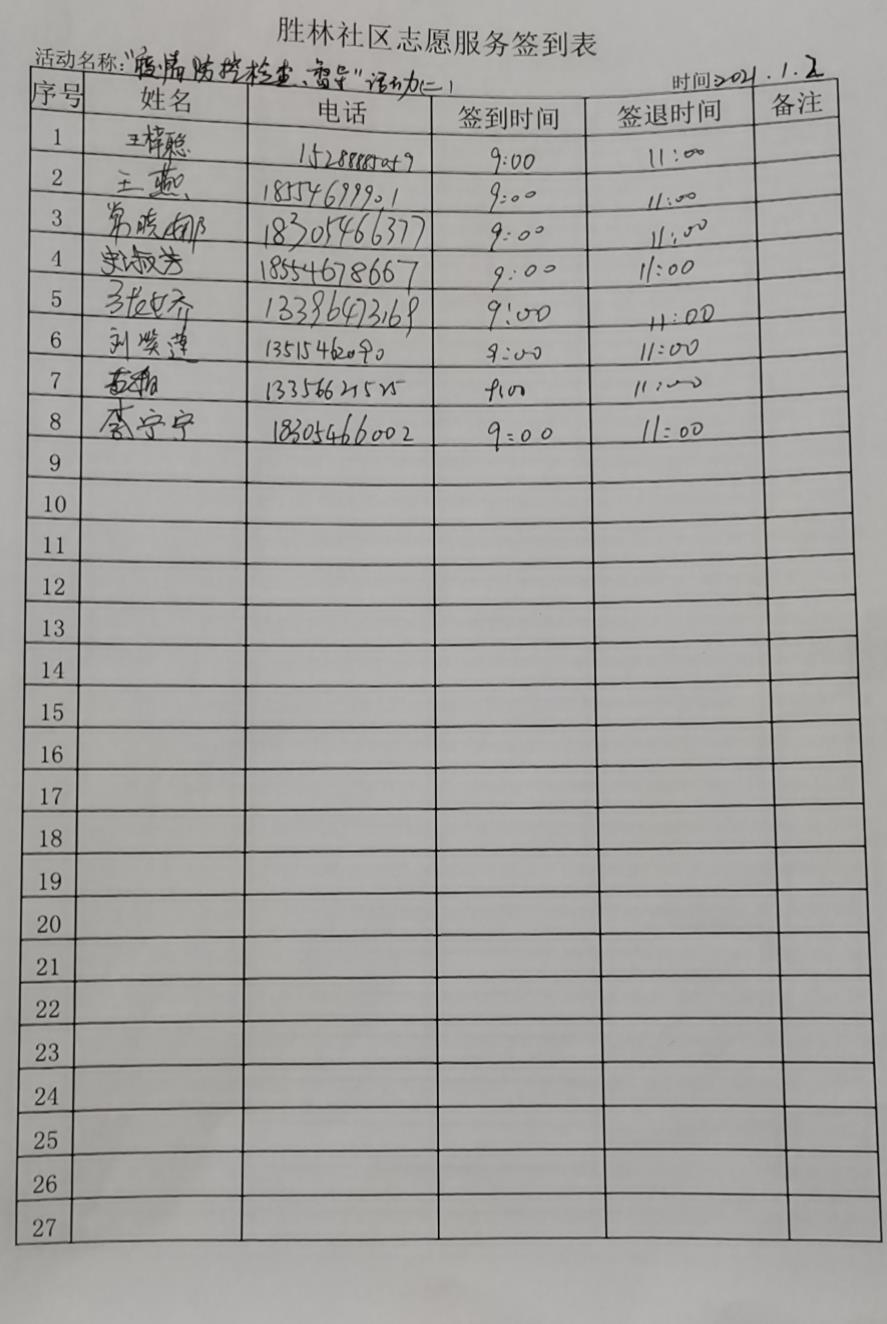 胜林社区志愿服务签到表
活动名称:"疫情防控检查、督导"活动(二) 时间2021.1.2
序号 姓名 电话 签到时间 签退时间 备注
1 王梓聪 15288885059 9:00 11:00
2 王燕 18554699901 9:00 11:00
3 常晓娜 18305466377 9:00 11:00
4 淑芳 18554678667 9:00 11:00
5 13396473169 9:00 11:00
6 刘焕莲 13515462090 9:00 11:00
7 13356621525 9:00 11:00
8 李宁宁 18305466002 9:00 11:00
9
10
11
12
13
14
15
16
17
18
19
20
21
22
23
24
25
26
27